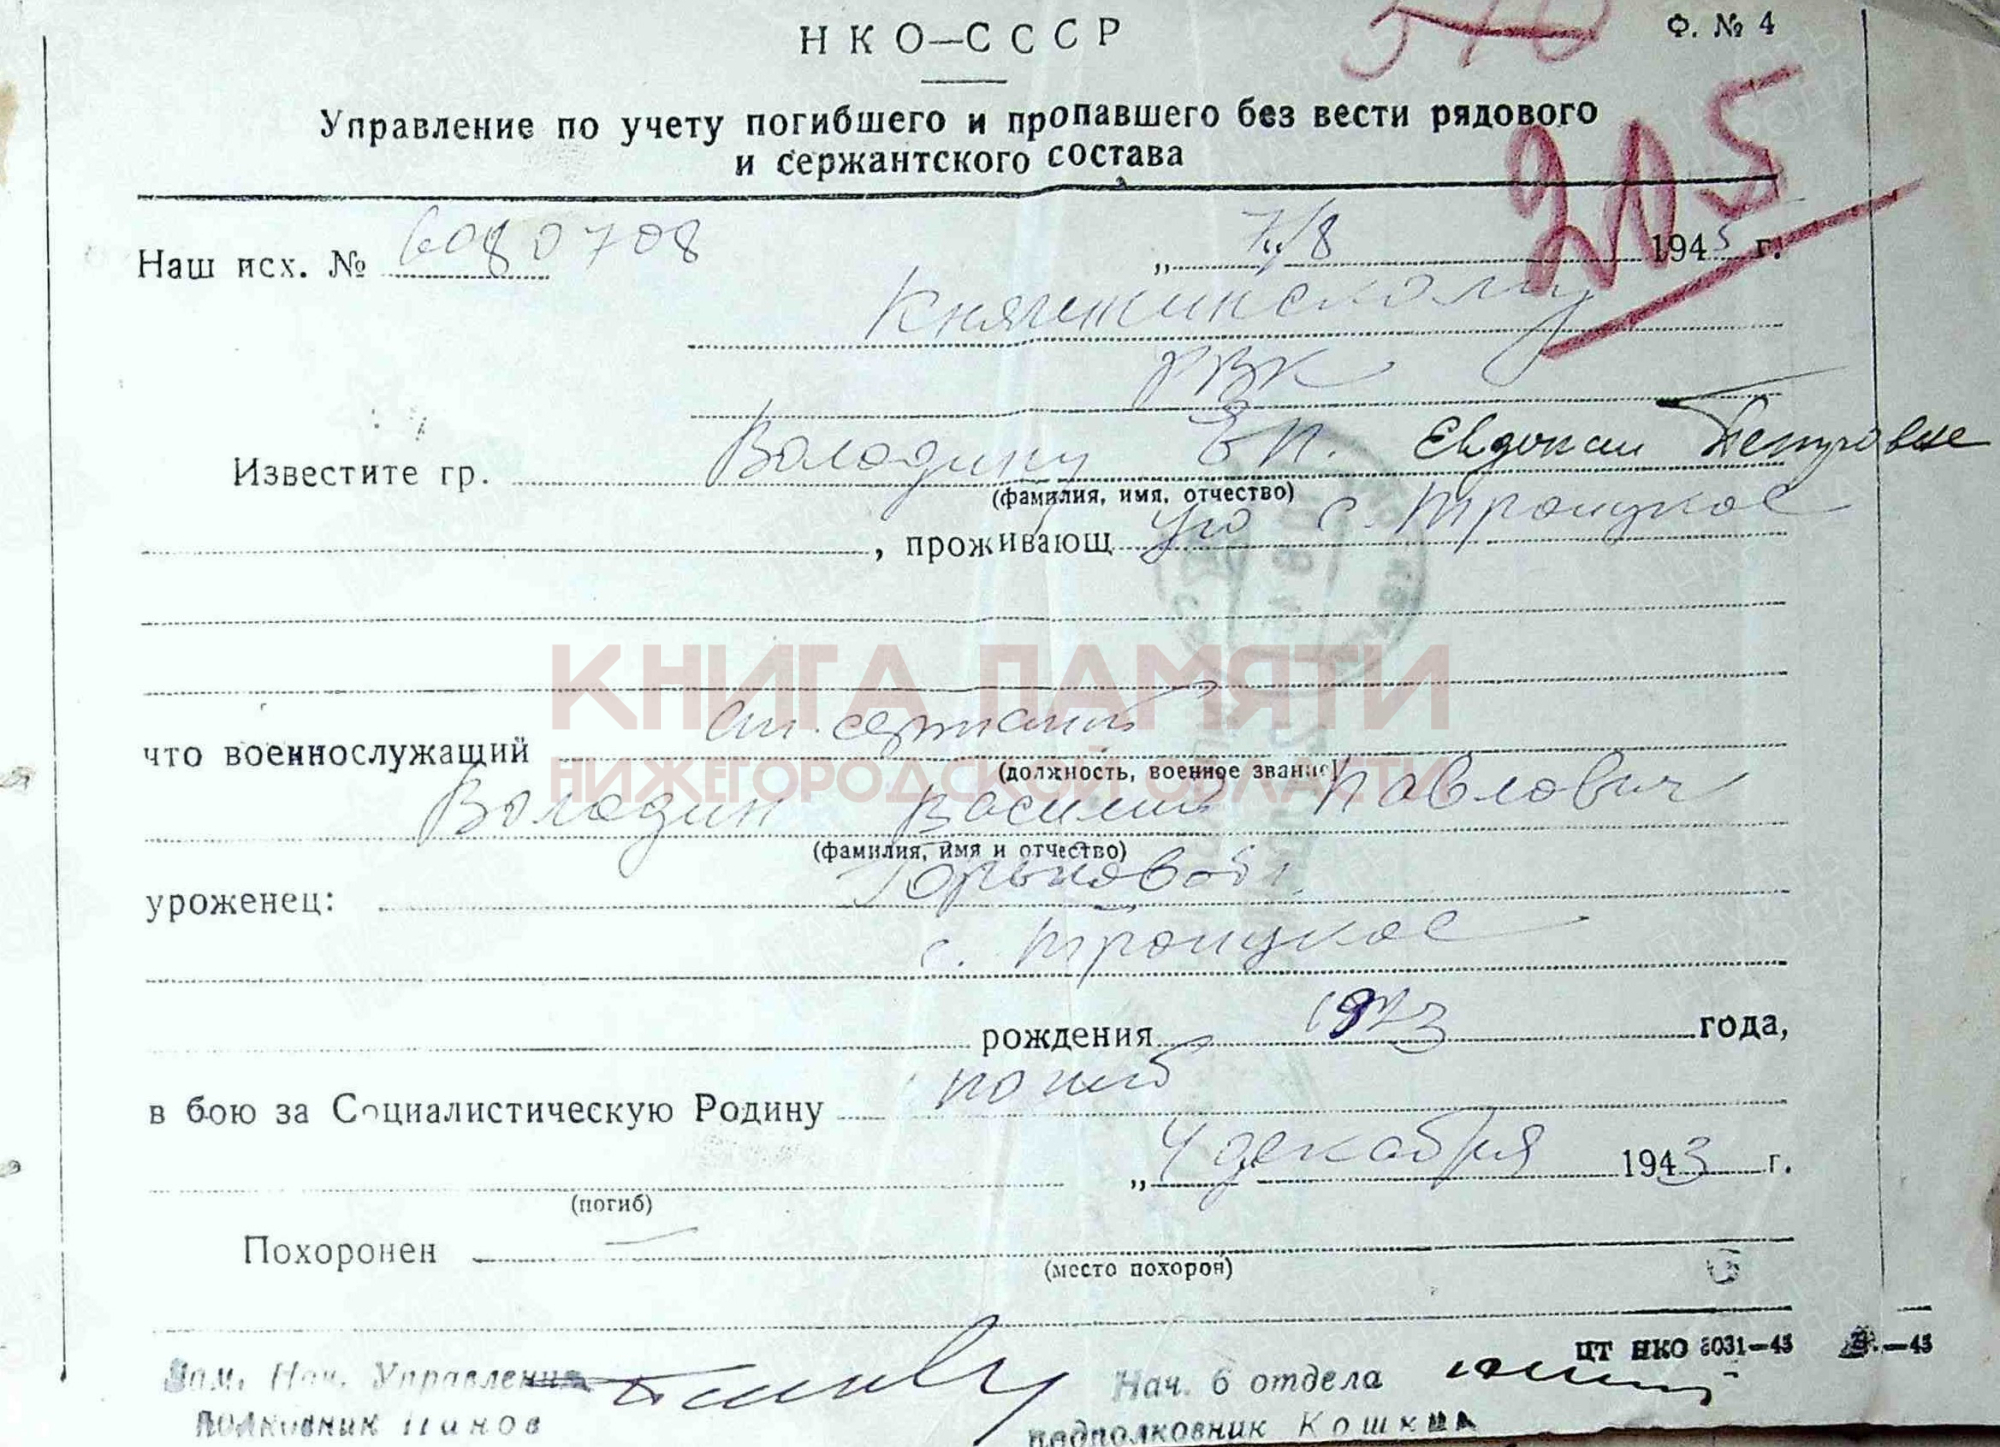 Ф. № 4
НКО—СССР
205
Управление по учету погибшего и пропавшего без вести рядового
и сержантского состава
Наш исх. № 6080708 „7/8 1945 г.
Княгининскому
РВК
Известите гр. Володину Е.П. Евдокии Петровне
(фамилия, имя, отчество)
, проживающ ую с. Троицкое
КНИГА ПАМЯТИ
НИЖЕГОРОДСКОЙ ОБЛАСТИ
что военнослужащий ст. сержант
(должность, военное звание)
Володин Василий Павлович
(фамилия, имя и отчество)
уроженец: Горьков обл
с. Троицкое
рождения 1923 года,
в бою за Социалистическую Родину погиб
„4 декабря 1943 г.
(погиб)
Похоронен —
(место похорон)
ЦТ НКО 6031—43 —43
Зам. Нач. Управления Нач. 6 отдела
полковник Панов подполковник Кошкин